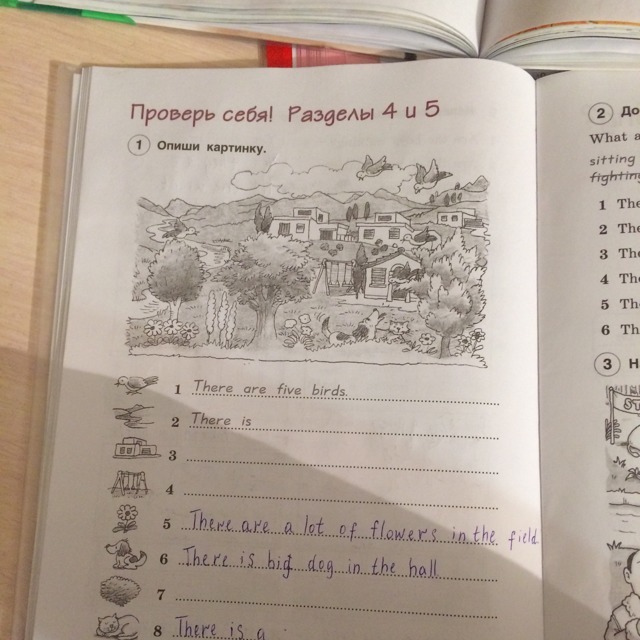 Проверь себя! Разделы 4 и 5
1 Опиши картинку.
1 There are five birds.
2 There is
3
4
5 There are a lot of flowers in the field
6 There is big dog in the hall
7
8 There is a
2 До
What a
sitting
fighting
1 The
2 The
3 The
4 The
5 The
6 Th
3 Н